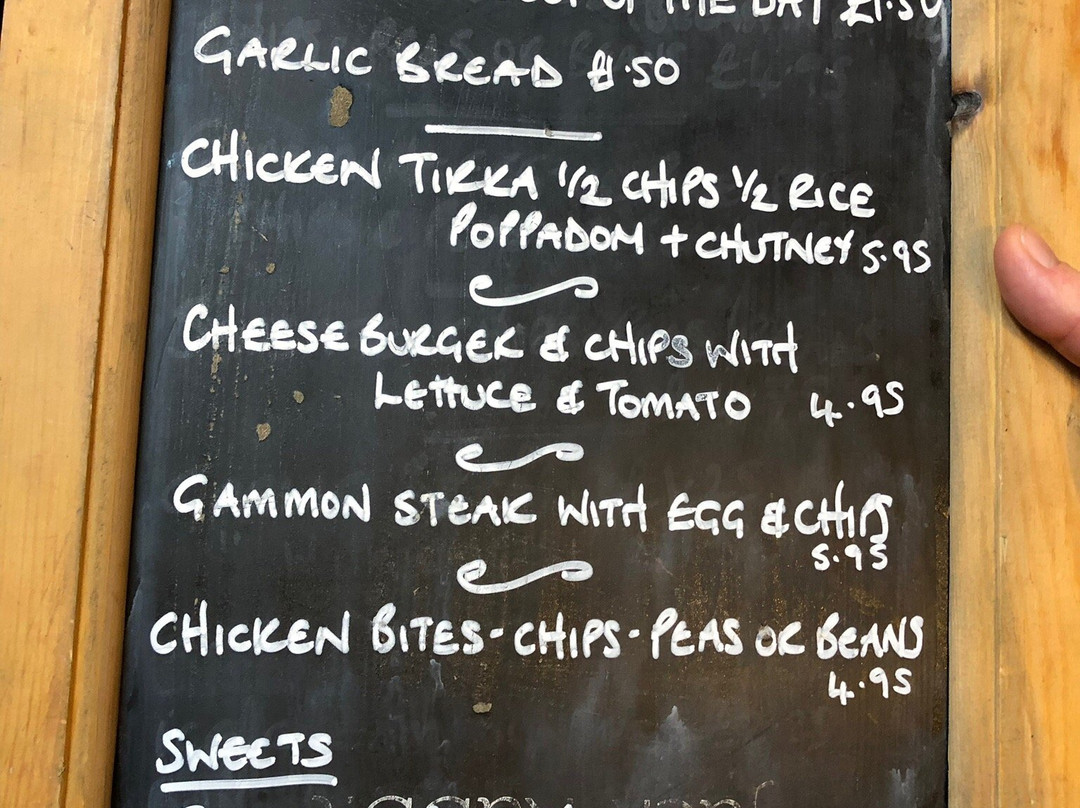 OF THE DAY £1.50
GARLIC BREAD £1.50
CHICKEN TIKKA 1/2 CHIPS 1/2 RICE
POPPADOM + CHUTNEY 5.95
CHEESE BURGER & CHIPS WITH
LETTUCE & TOMATO 4.95
GAMMON STEAK WITH EGG & CHIPS
5.95
CHICKEN BITES - CHIPS - PEAS OR BEANS
4.95
SWEETS